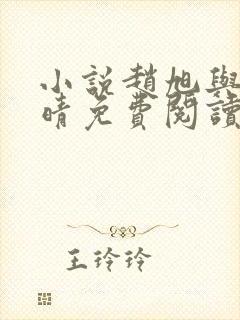 小説趙旭與
晴免費閱讀
王玲玲